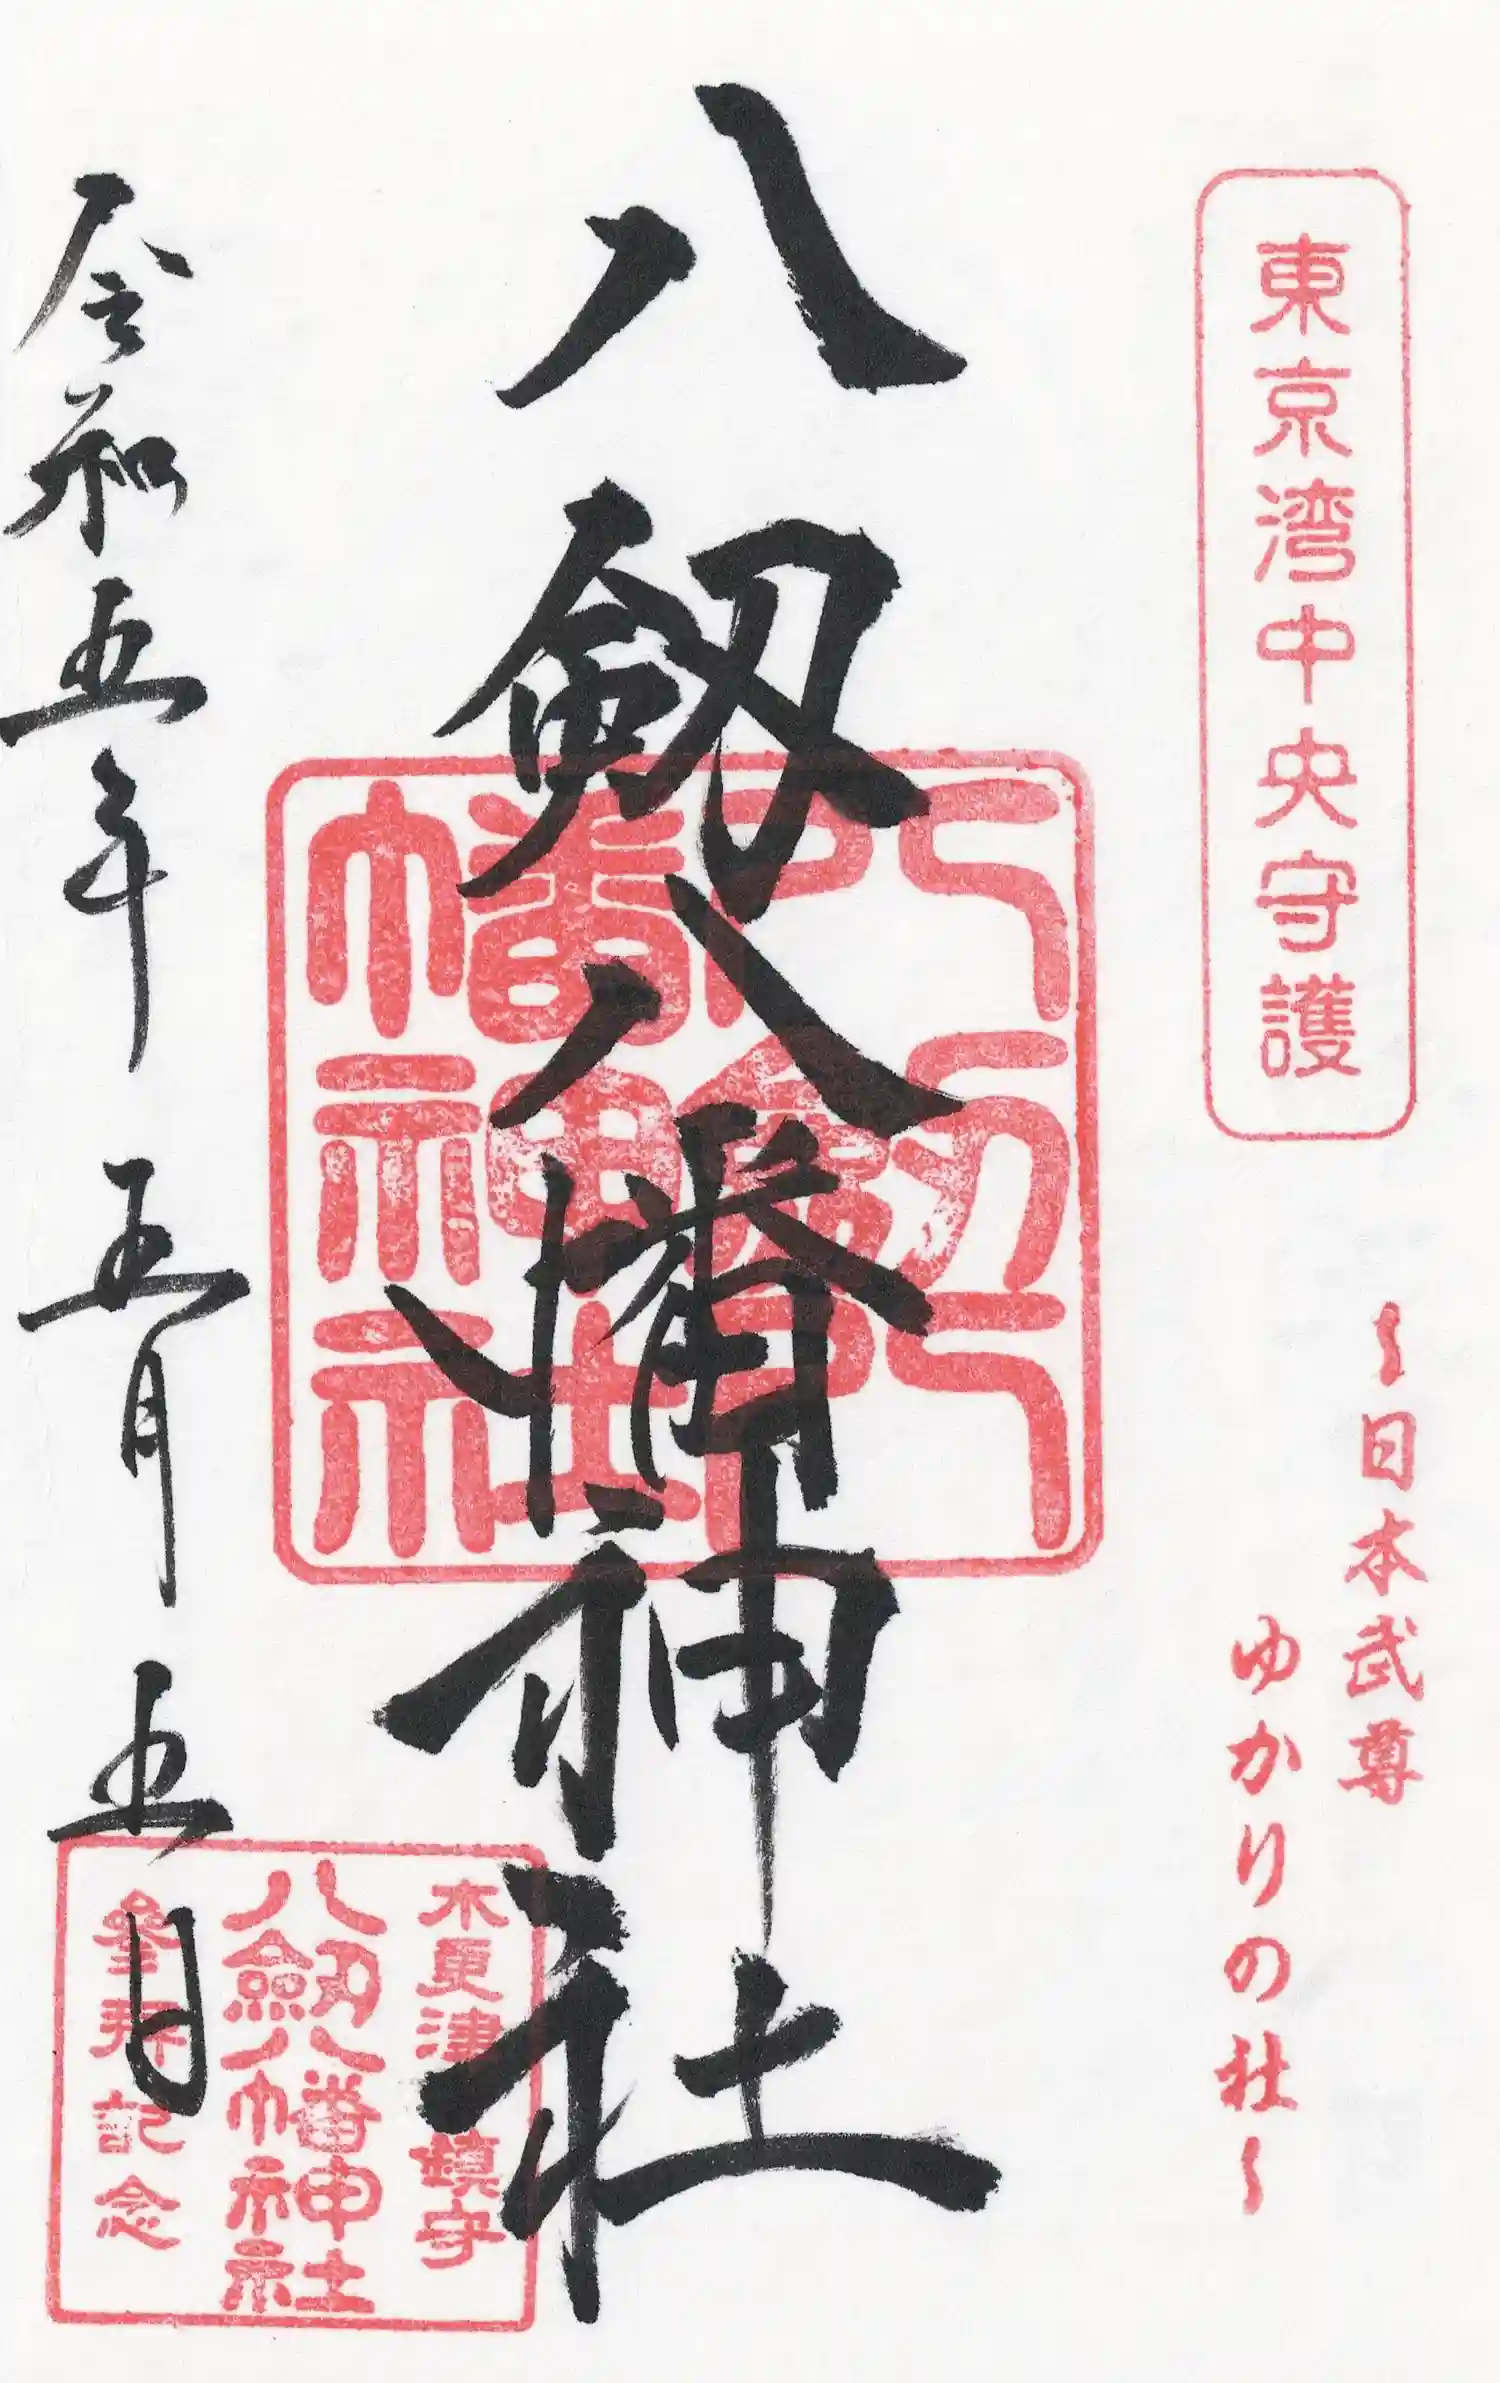 東京湾中央守護
～日本武尊
ゆかりの社～
八剱八幡神社
八剱八
幡神社
木更津総鎮守
八剱八幡神社
参拝記念
令和五年 五月 五日